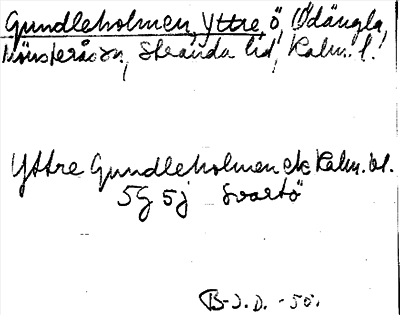 Gundleholmen, Yttre, ö, Ödängla,
Mönsterås sn, Stranda hd, Kalm. l.
Yttre Gundleholmen ek Kalm. bl.
5G 5j Svartö
B-J. D. -50.